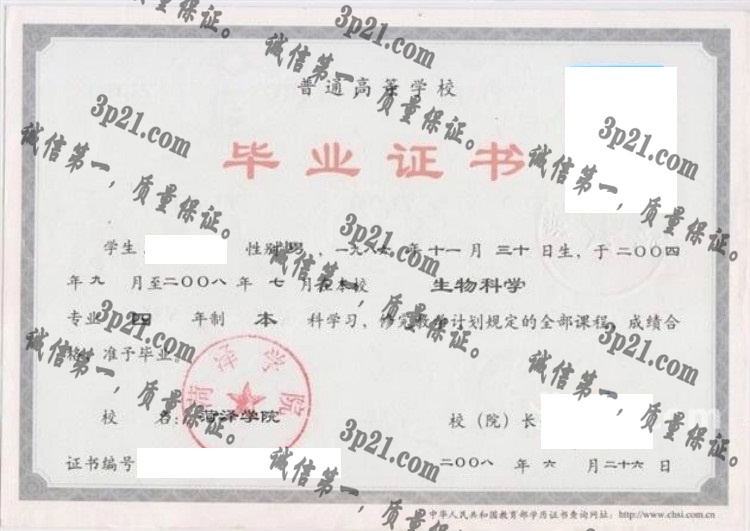 普通高等学校
毕业证书
学生 性别 男 一九八六 年 十一 月 三十 日生，于二〇〇四
年 九 月至二〇〇八 年 七 月在本校 生物科学
专业 四 年制 本 科学习，修完教学计划规定的全部课程，成绩合
格，准予毕业。
菏泽学院
校 名：菏泽学院 校（院）长
证书编号 二〇〇八 年 六 月 二十六 日
中华人民共和国教育部学历证书查询网址：http://www.chsi.com.cn
3p21.com
诚信第一，质量保证。
3p21.com
诚信第一，质量保证。
3p21.com
诚信第一，质量保证。
3p21.com
诚信第一，质量保证。
3p21.com
诚信第一，质量保证。
3p21.com
诚信第一，质量保证。
3p21.com
诚信第一，质量保证。
3p21.com
诚信第一，质量保证。